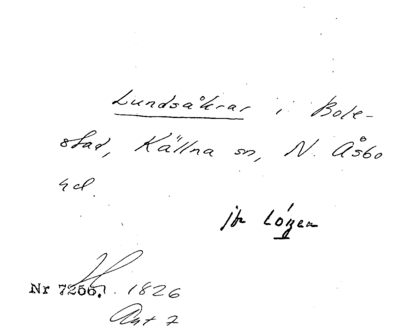 Lundsåkrar i Bole-
stad, Källna sn, N. Åsbo
hd.
jfr Lögen
Nr 7266. 1826
Ant 7